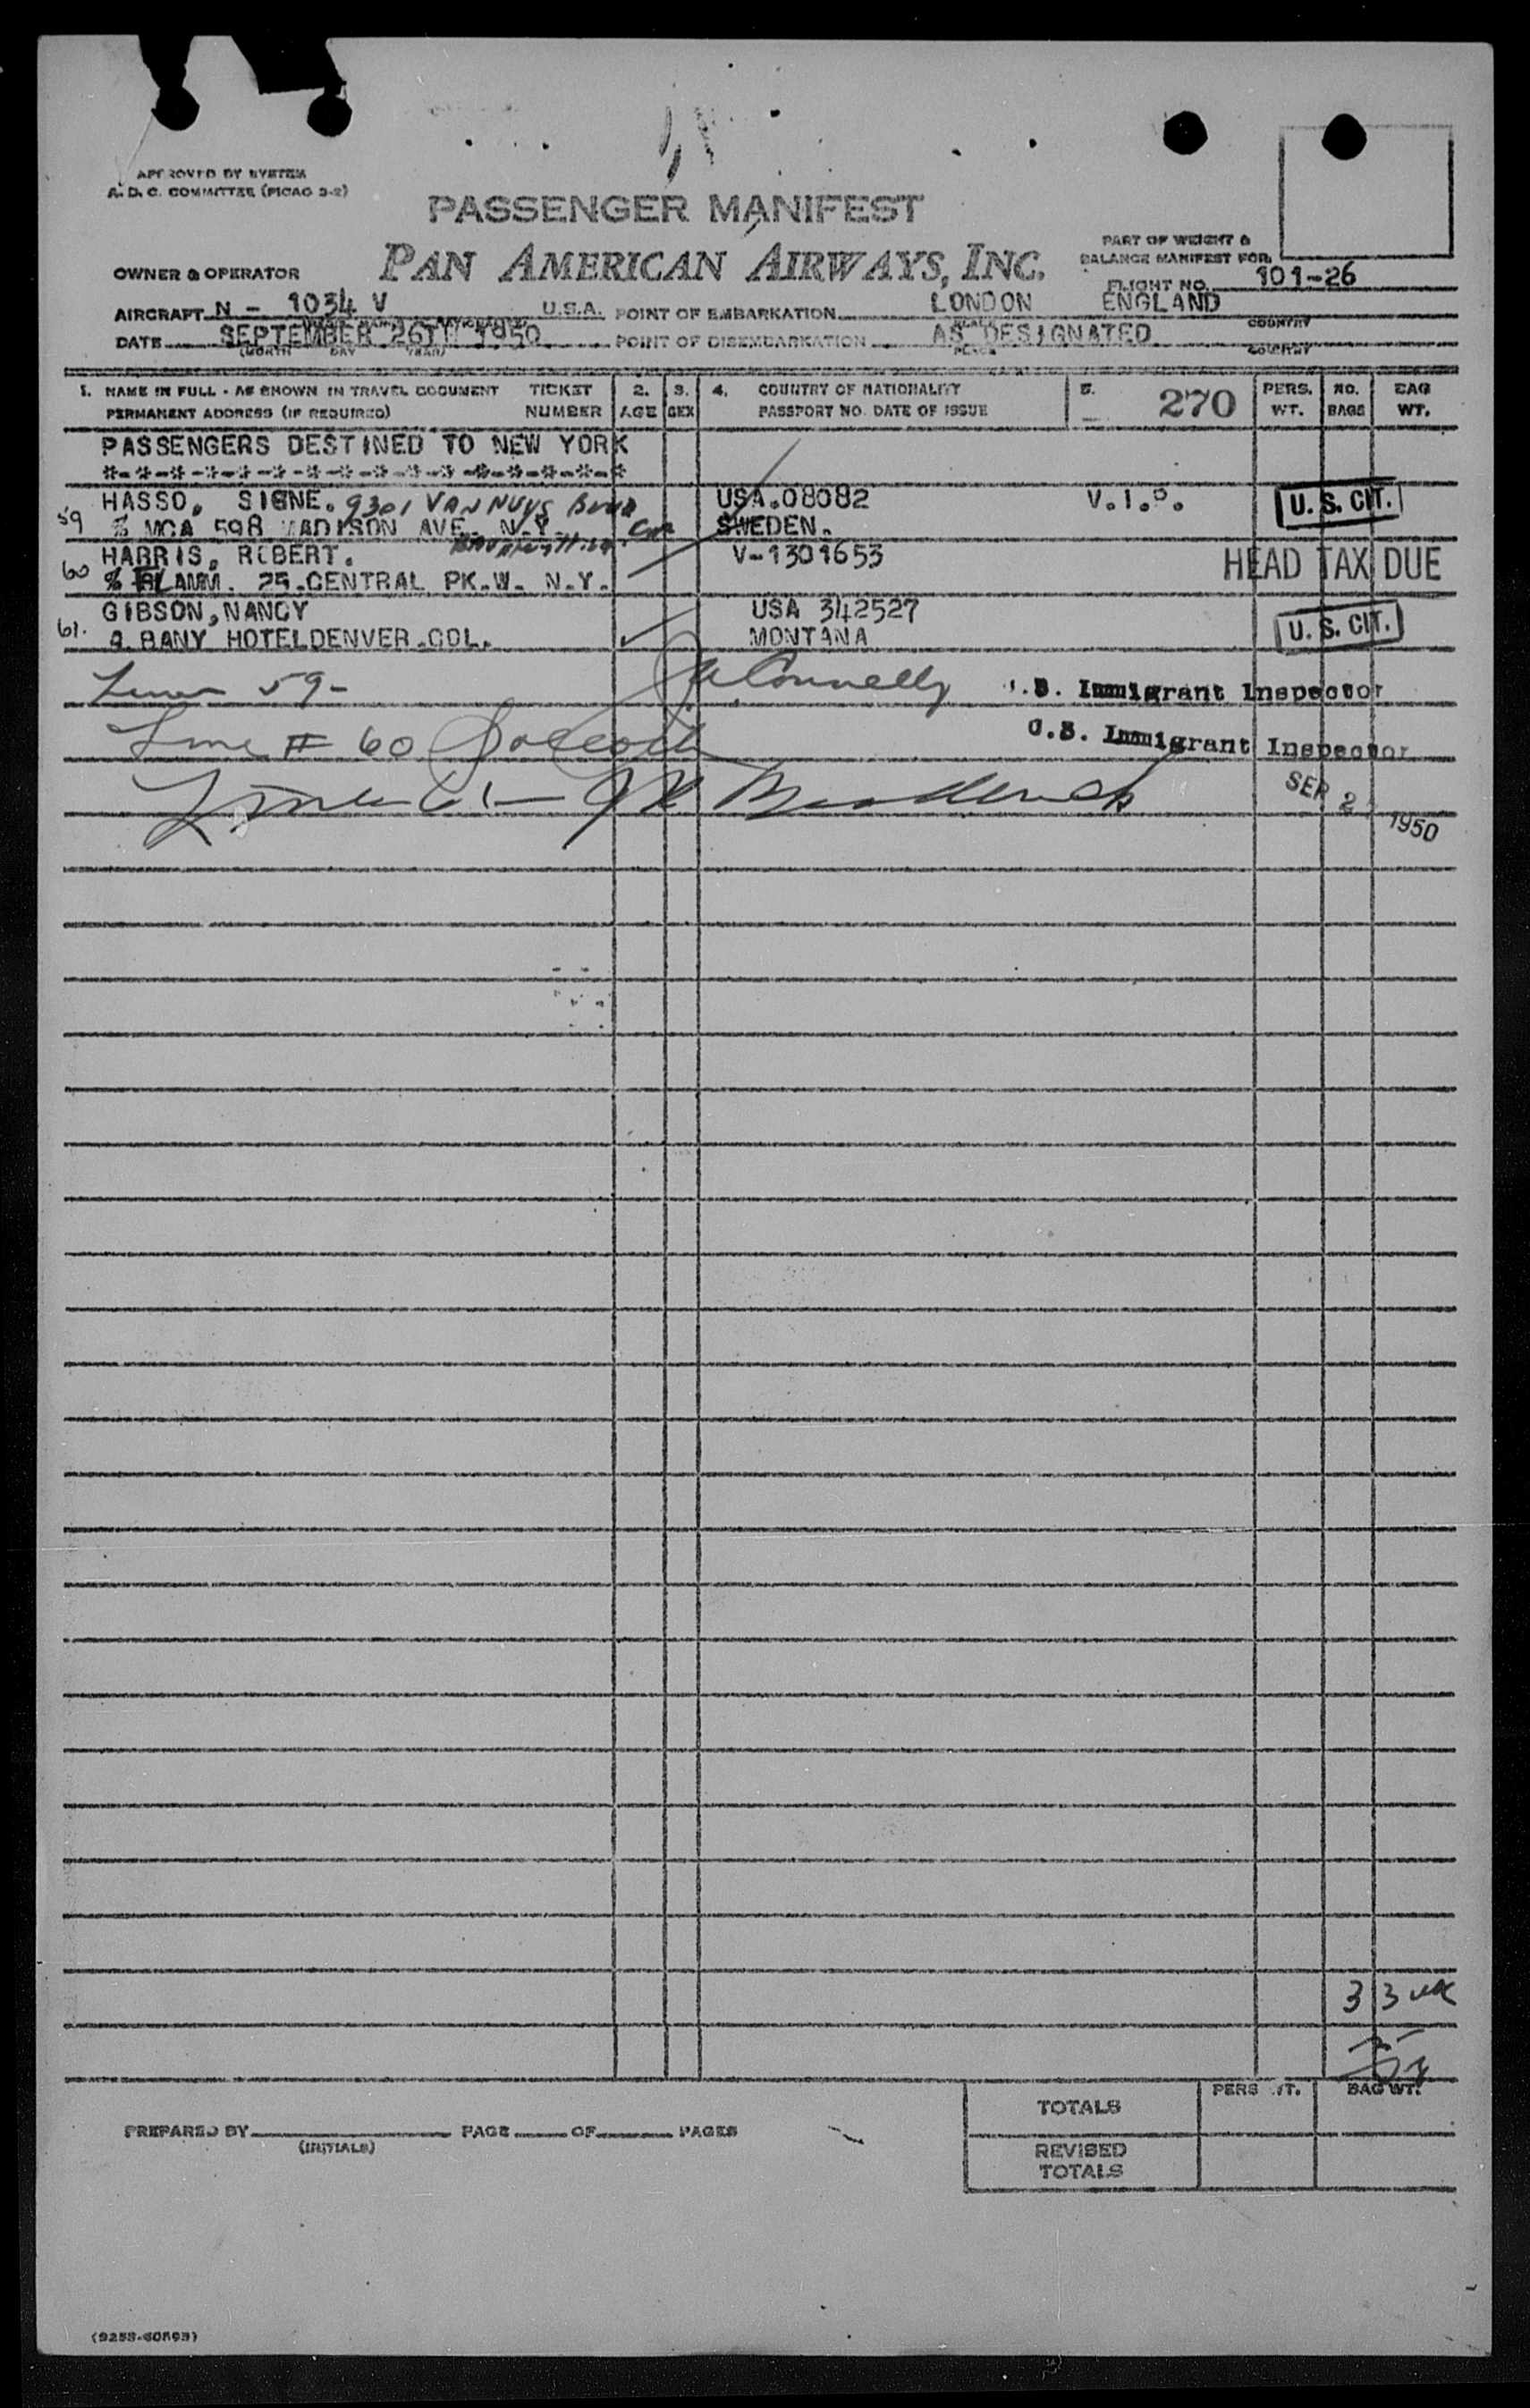 APPROVED BY SYSTEM
A. D. C. COMMITTEE (PICAO 3-2)
PASSENGER MANIFEST
PAN AMERICAN AIRWAYS, INC.
PART OF WEIGHT &
BALANCE MANIFEST FOR
OWNER & OPERATOR
FLIGHT NO. 101-26
AIRCRAFT N - 1034 V U.S.A. POINT OF EMBARKATION LONDON ENGLAND
PLACE COUNTRY
DATE SEPTEMBER 26TH 1950 POINT OF DISEMBARKATION AS DESIGNATED
(MONTH DAY YEAR) PLACE COUNTRY
1. NAME IN FULL - AS SHOWN IN TRAVEL DOCUMENT TICKET 2. 3. 4. COUNTRY OF NATIONALITY 5. 270 PERS. NO. BAG
PERMANENT ADDRESS (IF REQUIRED) NUMBER AGE SEX PASSPORT NO. DATE OF ISSUE WT. BAGS WT.
PASSENGERS DESTINED TO NEW YORK
*-*-*-*-*-*-*-*-*-*-*-*-*-*-*-*
HASSO, SIGNE. 9301 VAN NUYS BLVD USA.08082 V.I.P. U. S. CIT.
59 % MCA 598 MADISON AVE. N.Y. SWEDEN.
HARRIS, ROBERT. V-1301653 HEAD TAX DUE
60 % BLAMM. 25.CENTRAL PK.W. N.Y.
GIBSON, NANCY USA 342527 U. S. CIT.
61. A.BANY HOTELDENVER.COL. MONTANA
Line 59- Connelly U.S. Immigrant Inspector
Line # 60 U.S. Immigrant Inspector
Line 61-
SEP 2 1950
3 3
TOTALS PERS WT. BAG WT.
PREPARED BY (INITIALS) PAGE OF PAGES
REVISED
TOTALS